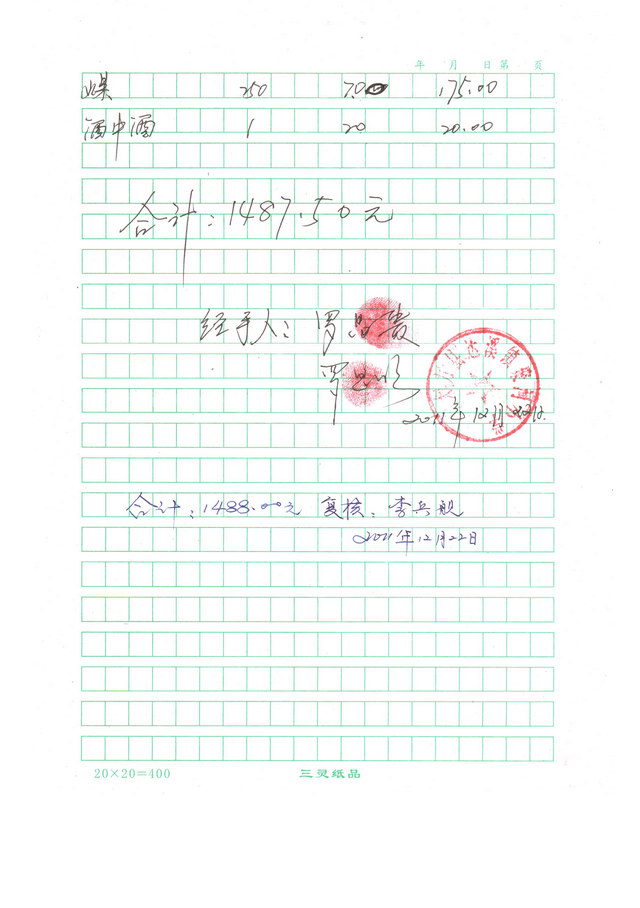 年 月 日第 页
煤 250 7.00 175.00
酒中酒 1 20 20.00
合计：1487.50元
经手人：罗昌贵
罗
2011年12月22日
合计：1488.00元 复核：李兵舰
2011年12月22日
20×20=400 三灵纸品